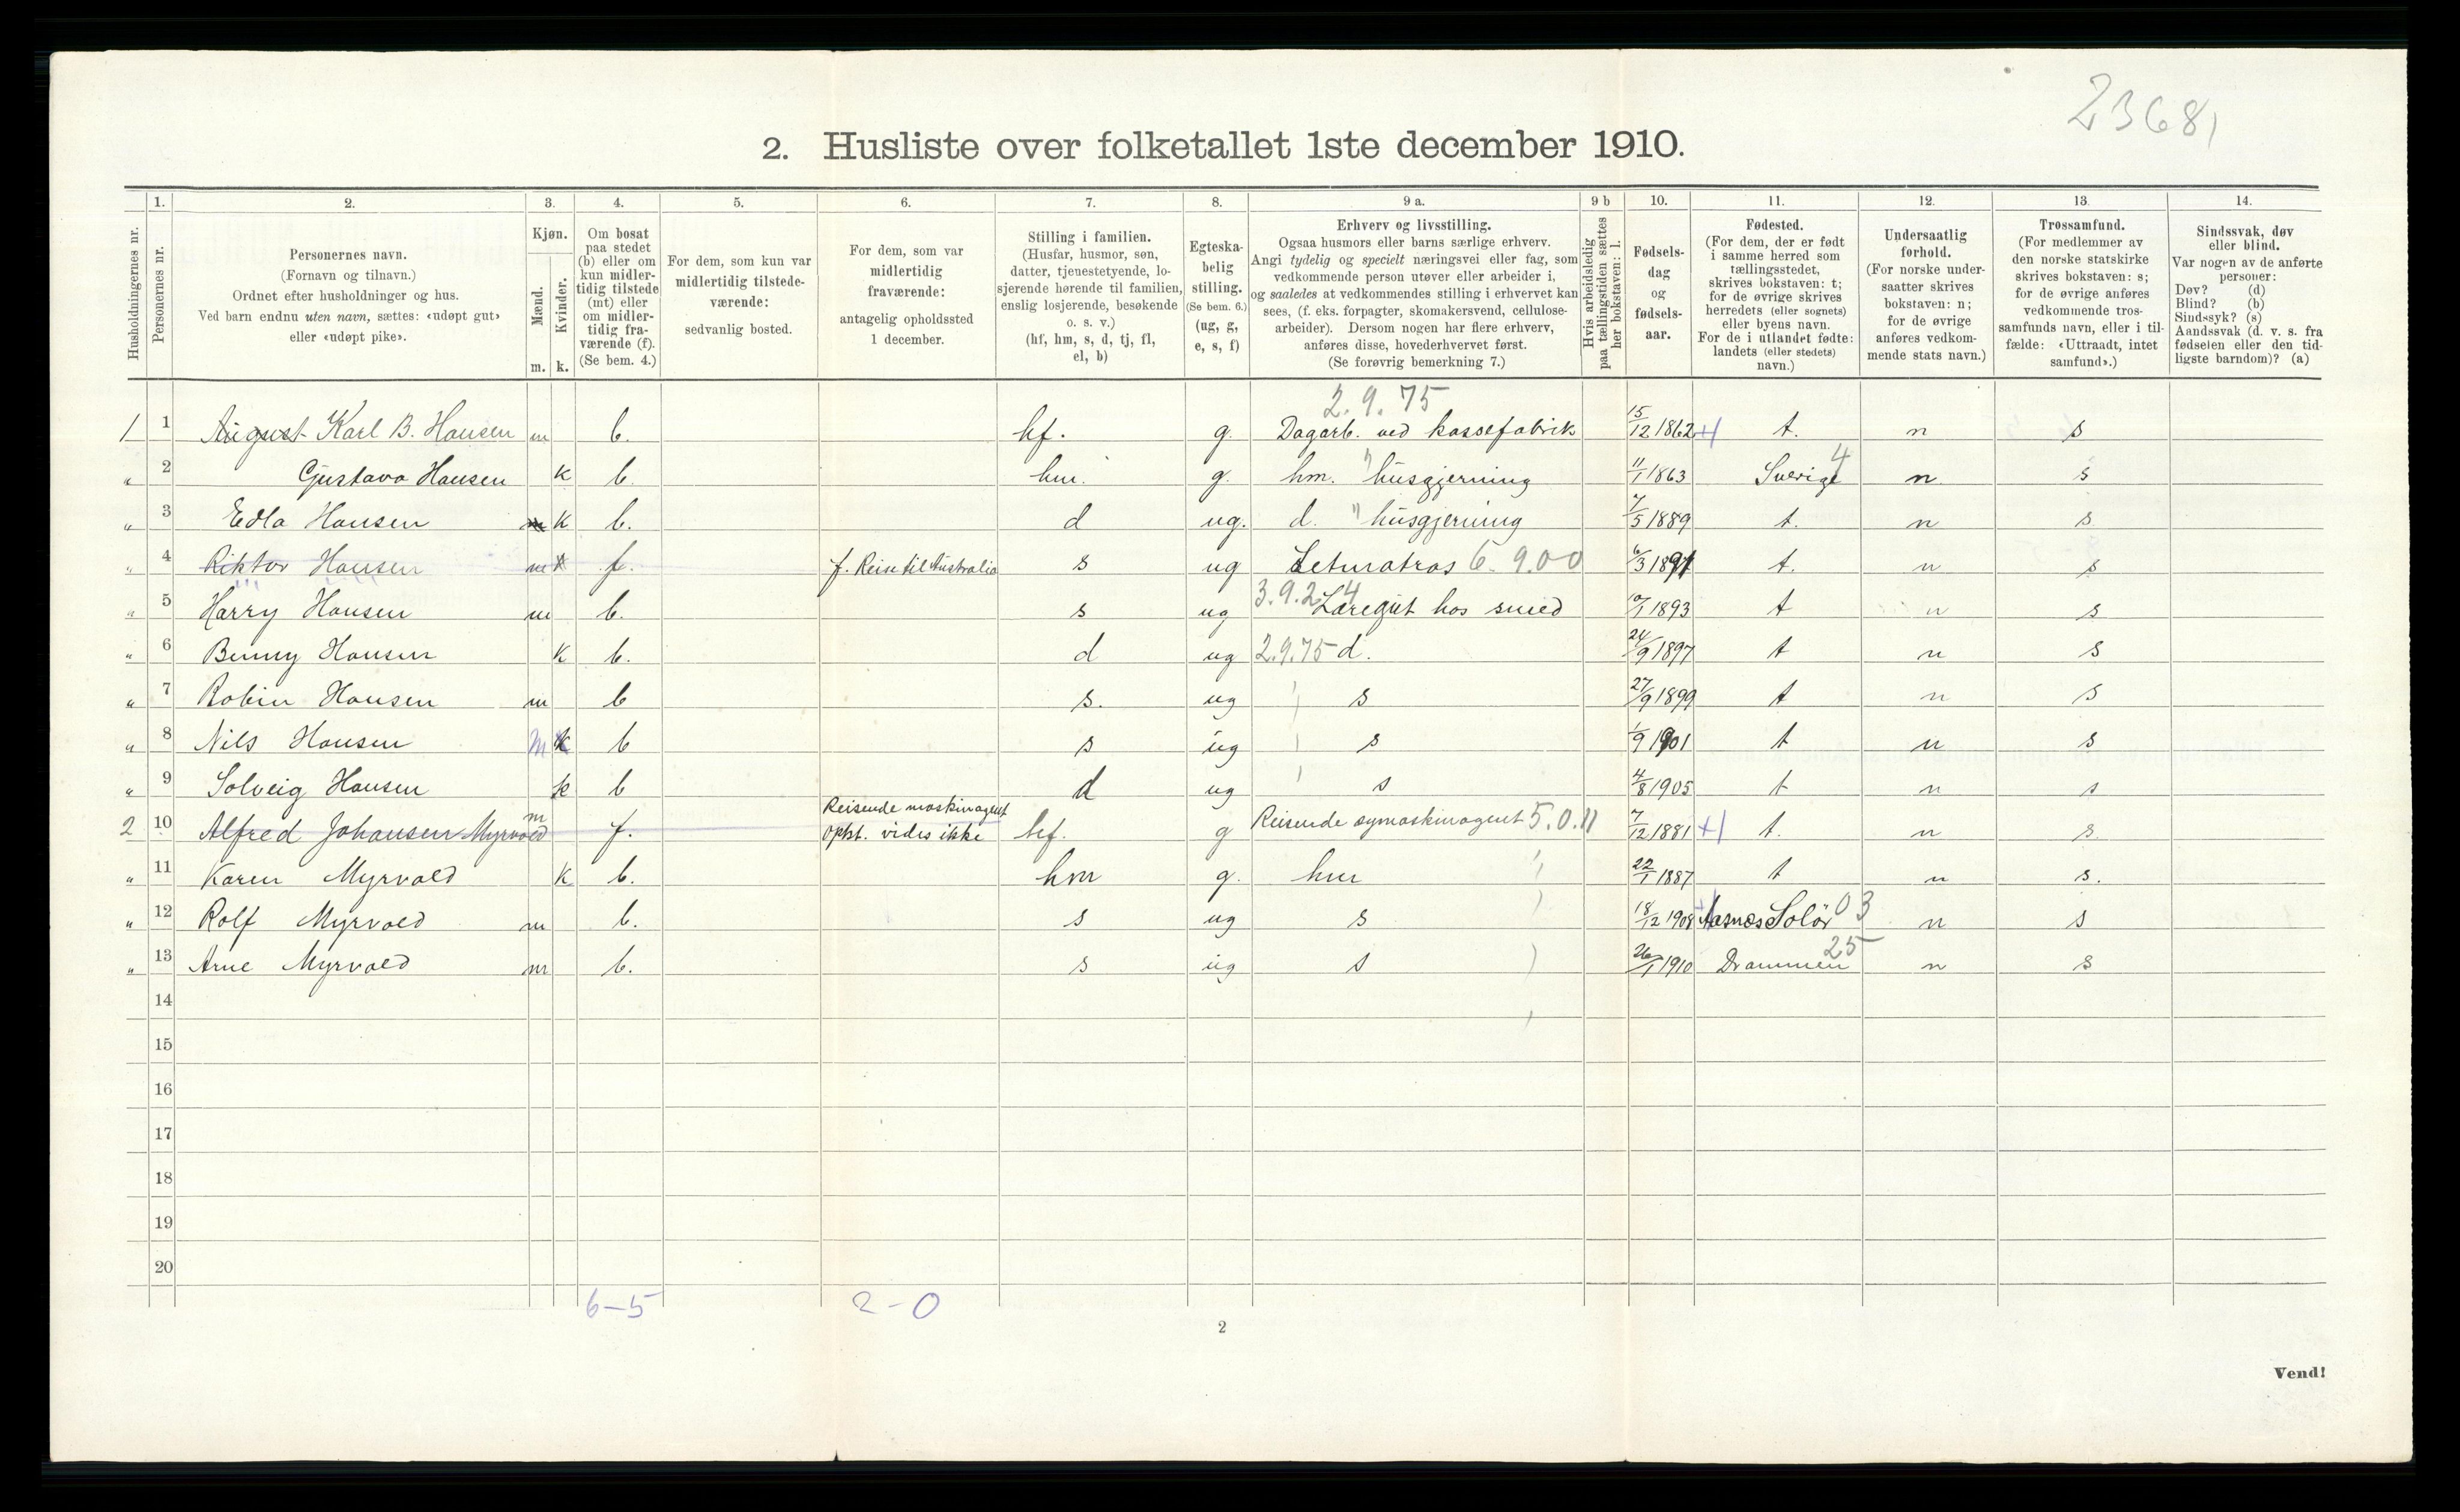 23681
2. Husliste over folketallet 1ste december 1910.
Husholdningernes nr.
1. Personernes nr.
2. Personernes navn.
(Fornavn og tilnavn.)
Ordnet efter husholdninger og hus.
Ved barn endnu uten navn, sættes: «udøpt gut»
eller «udøpt pike».
3. Kjøn.
Mænd. Kvinder.
m. k.
4. Om bosat
paa stedet
(b) eller om
kun midler-
tidig tilstede
(mt) eller
om midler-
tidig fra-
værende (f).
(Se bem. 4.)
5. For dem, som kun var
midlertidig tilstede-
værende:
sedvanlig bosted.
6. For dem, som var
midlertidig
fraværende:
antagelig opholdssted
1 december.
7. Stilling i familien.
(Husfar, husmor, søn,
datter, tjenestetyende, lo-
sjerende hørende til familien,
enslig losjerende, besøkende
o. s. v.)
(hf, hm, s, d, tj, fl,
el, b)
8. Egteska-
belig
stilling.
(Se bem. 6.)
(ug, g,
e, s, f)
9 a. Erhverv og livsstilling.
Ogsaa husmors eller barns særlige erhverv.
Angi tydelig og specielt næringsvei eller fag, som
vedkommende person utøver eller arbeider i,
og saaledes at vedkommendes stilling i erhvervet kan
sees, (f. eks. forpagter, skomakersvend, cellulose-
arbeider). Dersom nogen har flere erhverv,
anføres disse, hovederhvervet først.
(Se forøvrig bemerkning 7.)
9 b Hvis arbeidsledig
paa tællingstiden sættes
her bokstaven: l.
10. Fødsels-
dag
og
fødsels-
aar.
11. Fødested.
(For dem, der er født
i samme herred som
tællingsstedet,
skrives bokstaven: t;
for de øvrige skrives
herredets (eller sognets)
eller byens navn.
For de i utlandet fødte:
landets (eller stedets)
navn.)
12. Undersaatlig
forhold.
(For norske under-
saatter skrives
bokstaven: n;
for de øvrige
anføres vedkom-
mende stats navn.)
13. Trossamfund.
(For medlemmer av
den norske statskirke
skrives bokstaven: s;
for de øvrige anføres
vedkommende tros-
samfunds navn, eller i til-
fælde: «Uttraadt, intet
samfund».)
14. Sindssvak, døv
eller blind.
Var nogen av de anførte
personer:
Døv? (d)
Blind? (b)
Sindssyk? (s)
Aandssvak (d. v. s. fra
fødselen eller den tid-
ligste barndom)? (a)
2.9.75
1 1 August Karl B. Hansen m b. hf. g. Dagarb. ved kassefabrik 15/12 1862 t. n s
4
" 2 Gustava Hansen k b. hm. g. hm. husgjerning 11/1 1863 Sverige n s
" 3 Edla Hansen k b. d ug. d. husgjerning 7/5 1889 t. n s
" 4 Hansen m f. f. Reise til Australia s ug Letmatros 6.9.00 6/3 1891 t. n s
3.9.24
" 5 Harry Hansen m b. s ug Læregut hos smed 1893 t n s
" 6 Benny Hansen k b. d ug 2.9.75 d. 24/9 1897 t n s
" 7 Robin Hansen m b s. ug s 27/9 1899 t n s
" 8 Nils Hansen m b s ug s 1/9 1901 t n s
" 9 Solveig Hansen k b d ug s 4/8 1905 t n s
Reisende maskinagent
2 10 Alfred Johansen Myrvold m f. Opst. vides ikke hf. g Reisende symaskinagent 5.0.11 7/12 1881 t. n s
" 11 Karen Myrvold k b. hm g. hm 22/1 1887 t n s.
" 12 Rolf Myrvold m b. s ug s 18/12 1908 Aasnes Solør 03 n s
25
" 13 Arne Myrvold m b. s ug s 26/1 1910 Drammen n s
14
15
16
17
18
19
20
6-5 2-0
2
Vend!